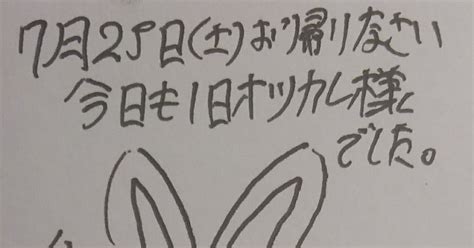 7月29日(土)お帰りなさい
今日も1日オツカレ様
でした。